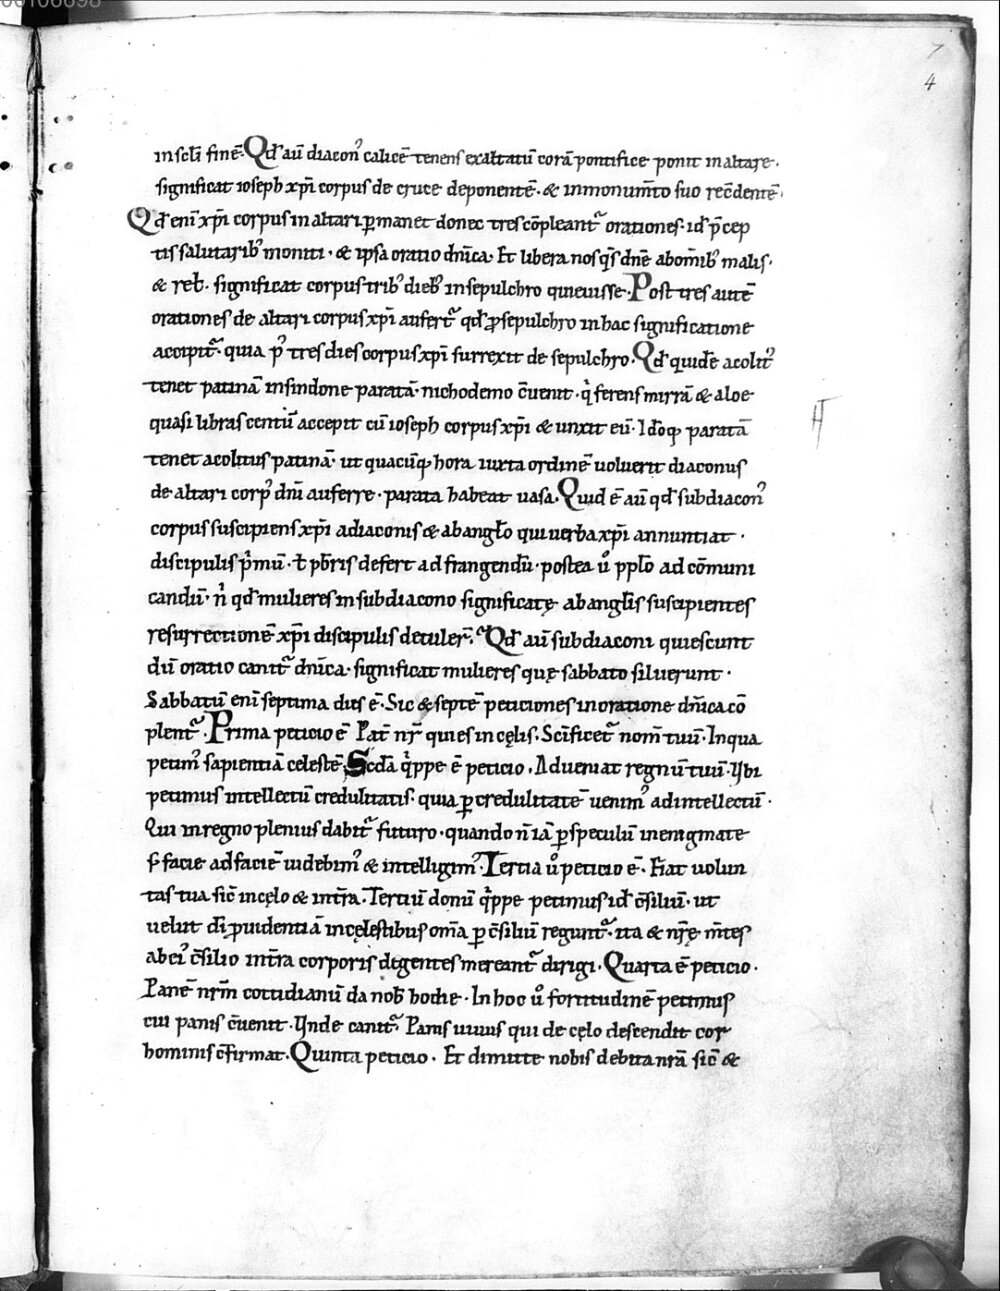 00106898
7
4
in sc̄li finē. Qđ aū diacon᾽ calicē tenens exaltatū corā pontifice ponit in altare.
significat ioseph xp̄i corpus de cruce deponentē. & in monum̄to suo recōdentē.
Qđ enī xp̄i corpus in altari ꝑmanet donec tres cōpleant᷑ orationes. id p̄cep
tis salutarib᾽ moniti. & ipsa oratio dn̄ica. Et libera nos qs̄ dn̄e ab om̄ib᾽ malis.
& rel̄. significat corpus trib᾽ dieb᾽ in sepulchro quieuisse. Post tres autē
orationes de altari corpus xp̄i aufert᷑ qđ ꝓ sepulchro in hac significatione
accipit᷑. quia p᾽ tres dies corpus xp̄i surrexit de sepulchro. Qđ quidē acolit᾽
tenet patinā in sindone paratā. nichodemo c̄uenit. qͥ ferens mirrā & aloe
quasi libras centū accepit cū ioseph corpus xp̄i & unxit eū. Idōꝙ paratā
tenet acolitus patinā. ut quacūꝙ hora iuxta ordinē uoluerit diaconus
de altari corp᾽ dn̄i auferre. parata habeat uasa. Quid ē aū qđ subdiacon᾽
corpus suscipiens xp̄i a diaconis & ab angl̄o qui uerba xp̄i annuntiat.
discipulis pͥmū. ł pb̄ris defert ad frangendū. postea u̾ ppl̄o ad cōmuni
candū. nͥ qđ mulieres in subdiacono significatę ab angl̄is suscipientes
resurrectionē xp̄i discipulis detuler̄. Qđ aū subdiaconi quiescunt
dū oratio canit᷑ dn̄ica. significat mulieres quę sabbato siluerunt.
Sabbatū enī septima dies ē. Sic & septē peticiones in oratione dn̄ica cō
plent᷑. Prima peticio ē Pat̄ nr̄ qui es in cęlis. Sc̄ificet᷑ nom̄ tuū. In qua
petim᾽ sapientiā celestē. Scđa qͥppe ē peticio. Adueniat regnū tuū. Ybi
petimus intellectū credulitatis. quia ꝑ credulitatē uenim᾽ ad intellectū.
Qui in regno plenius dabit᷑ futuro. quando n̄ iā ꝑ speculū in enigmate
s̄ facie ad faciē uidebim᾽ & intelligim᾽. Tertia u̾ peticio ē. Fiat uolun
tas tua sic̄ in cęlo & in tr̄a. Tertiū donū qͥppe petimus id c̄siliū. ut
uelut di̅ ꝓuidentiā in cęlestibus om̄a ꝑ c̄siliū regunt᷑. ita & nr̄ę m̄tes
ab ei᾽ c̄silio in tr̄a corporis degentes mereant᷑ dirigi. Quarta ē peticio.
Panē nr̄m cottidianū da nob̄ hodie. In hoc u̾ fortitudinē petimus
cui panis c̄uenit. Ynde canit᷑. Panis uiuus qui de cęlo descendit cor
hominis c̄firmat. Quinta peticio. Et dimitte nobis debita nr̄a sic̄ &